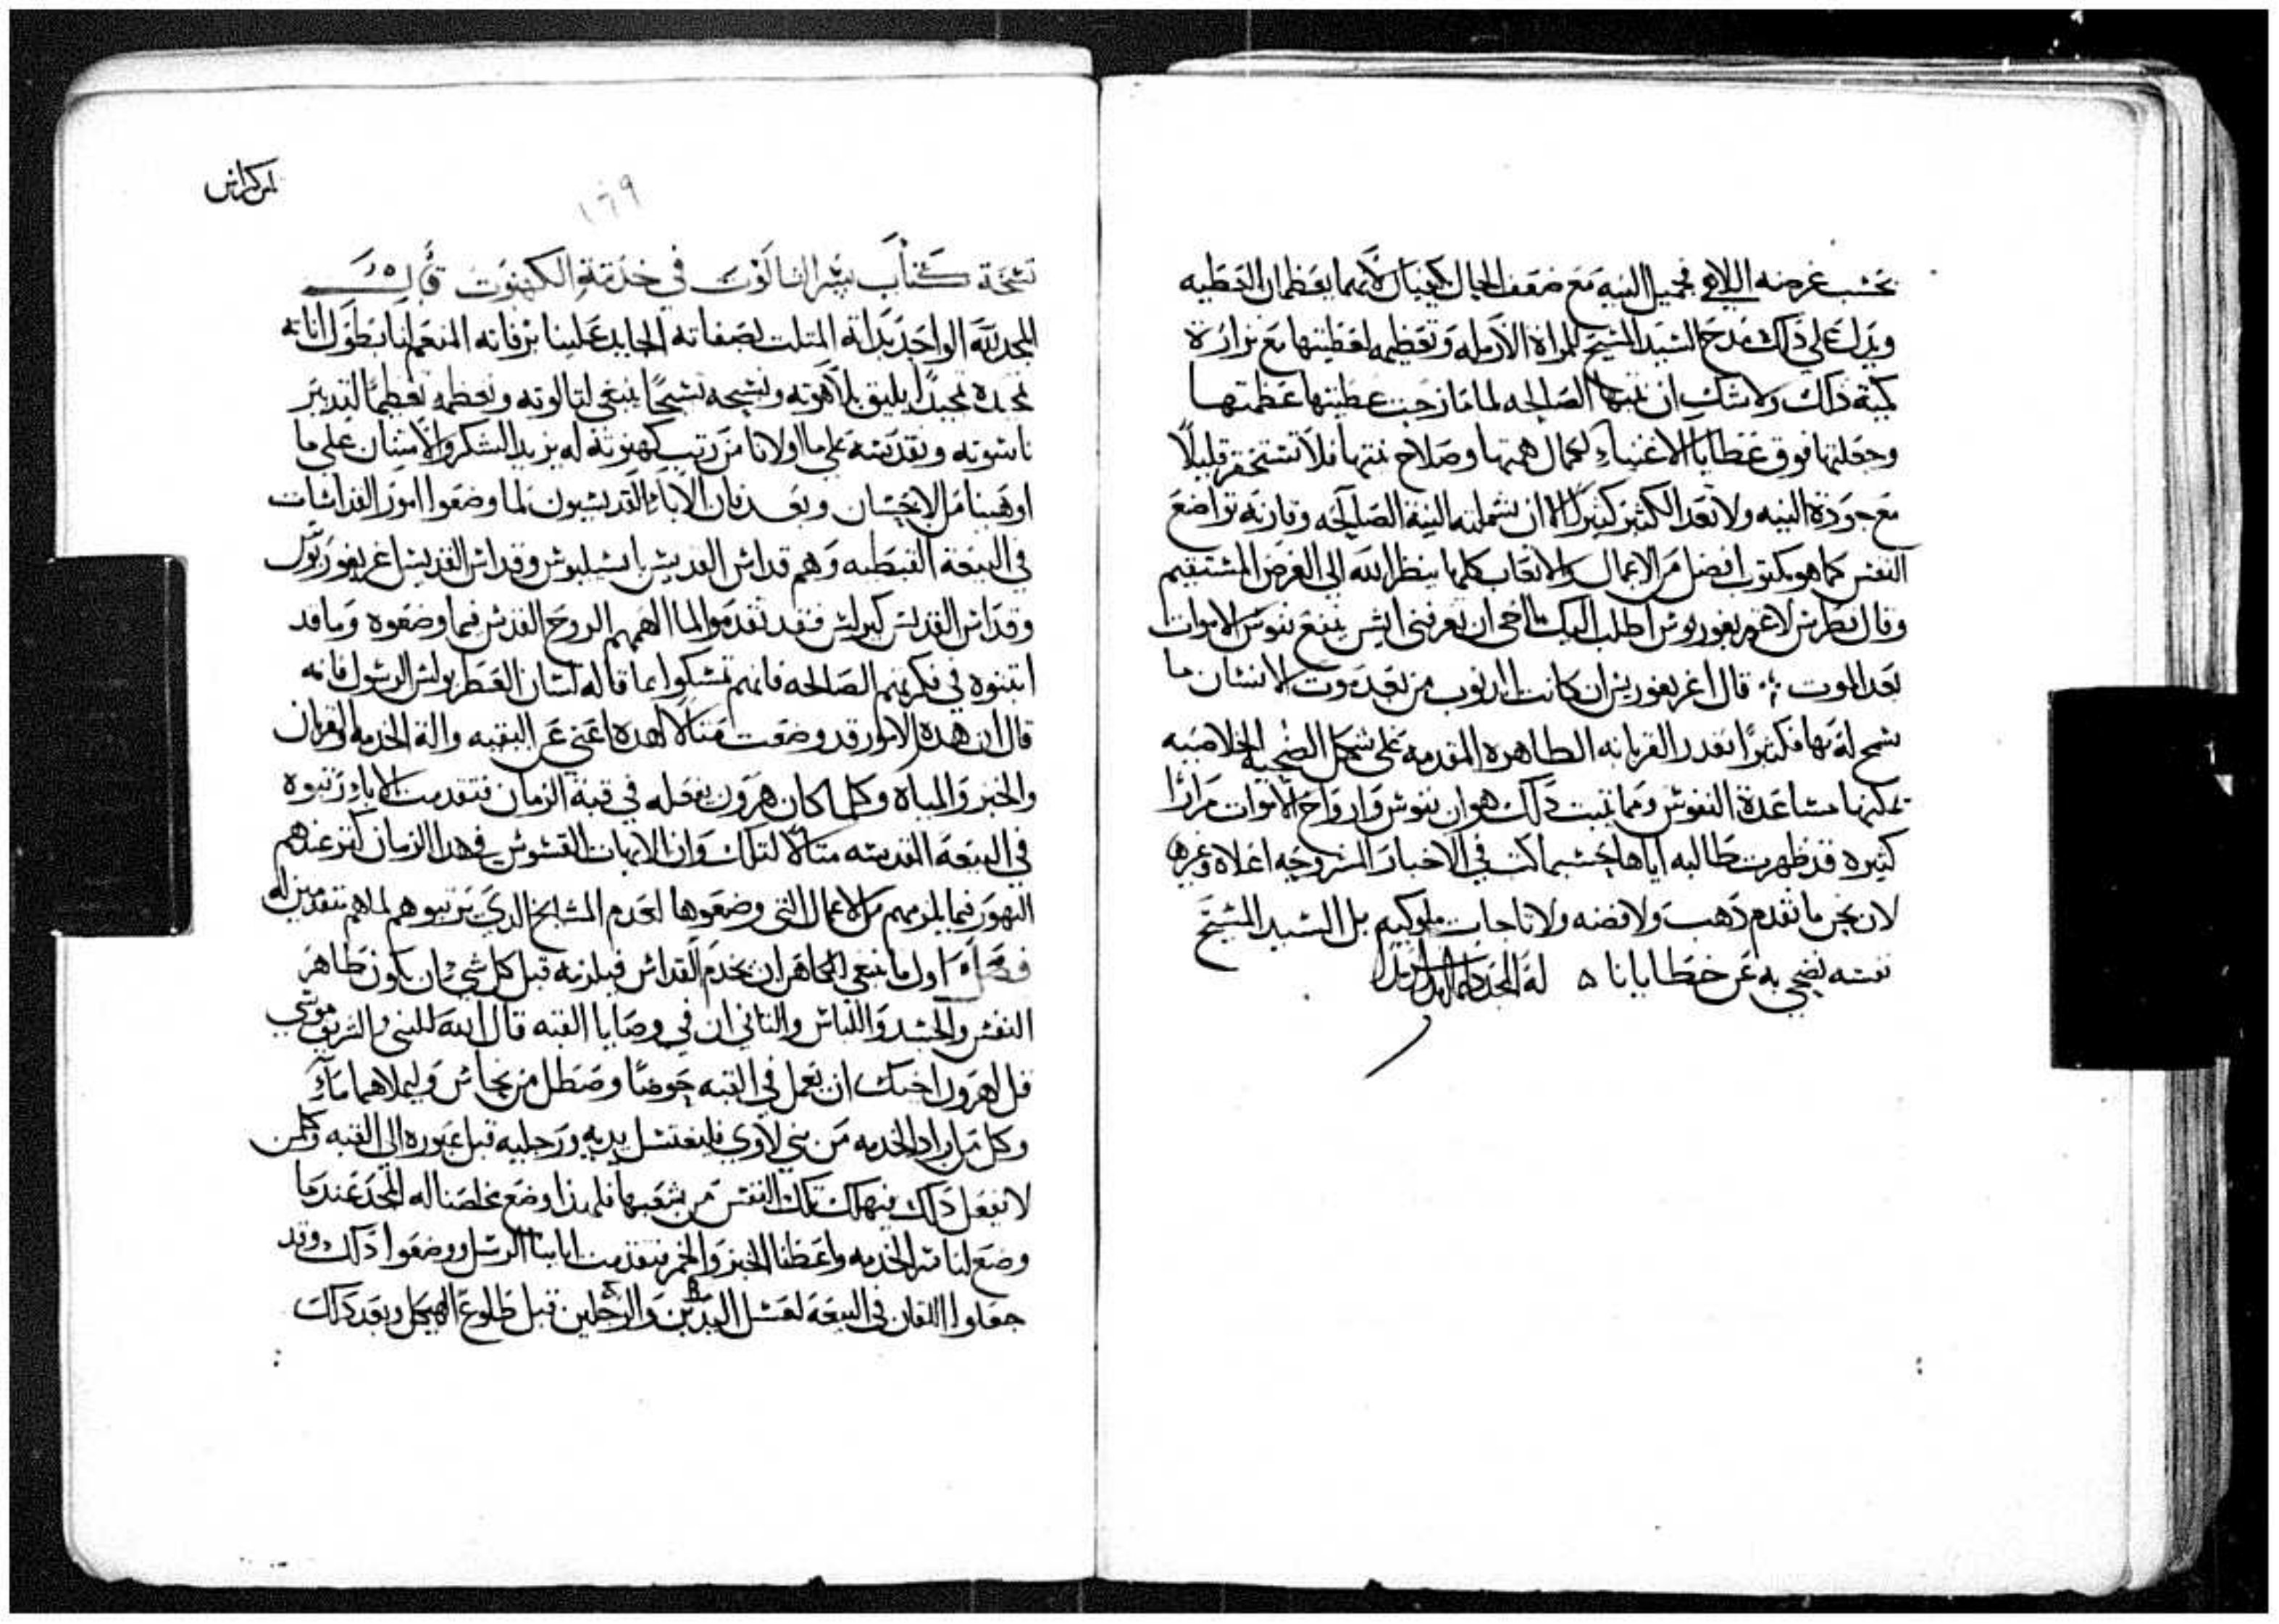 بحسب غرضه اللاهي بجميل النيه مع ضعف الحال يكفيان لانهما يعظمان العطيه
ويدل علي ذلك مدح السيد المسيح للمراة الارمله وتعظيمه لعطيتها مع نزارة
كمية ذاك ولا شك ان نيتها الصالحه لما مازجت عطيتها عظمتها
وجعلتها فوق عطايا الاغنياء لكمال همتها وصلاح نيتها فلا تستحقر قليلًا
مع جودة النيه ولا تعد الكثير كثيرًا الا ان شملته النية الصالحه وقارنه تواضع
النفس كما هو مكتوب افضل من الاعمال والاتعاب كلها ينظر الله الي الغرض المستقيم
وقال بطرس لاغريغوريوس اطلب اليك يا اخي ان تعرفني ايش ينفع نفوس الاموات
بعد الموت قال اغريغوريس ان كانت الدنوب من بعد موت الانسان ما
شمح له بها فكثيرًا تقدر القربانه الطاهره المقدمه علي شكل الضحيه الخلاصيه
تمكنها مساعدة النفوس ومما يثبت ذلك هو ان نفوس وارواح الاموات مرارًا
كثيره قد ظهرت طالبه اياها بحسبما كتب في الاخبار المشروحه اعلاه وغيرها
لان نحن ما نقدم دهب ولا فضه ولا تاجات ملوكيه بل السيد المسيح
نفسه نضحي به عن خطايانا ه له المجد دايما ابدا
لس كراس
١٦٩
نسخة كتاب سر التالوت في خدمة الكهنوت قال
المجد لله الواحد بداته المتلت بصفاته الجايد علينا برفاته المنعم لنا بطول اناته
نمجده تمجيدًا يليق بلاهوته ونسبحه تسبيحًا ينبغي لتالوته ونعظمه تعظيمًا لتدبير
ناسوته ونقدسه علي ما اولانا من رتب كهنوته له يزيد الشكر والامتنان علي ما
اوهبنا من الاحسان وبعد فان الاباء القديسيون لما وضعوا امور القداسات
في البيعة القبطيه وهم قداس القديس باسيليوس وقداس القديس اغريغوريوس
وقداس القديس كيرلس فقد تقدموا لما الهمهم الروح القدس فيما وضعوه وما قد
اتبنوه في فكرتهم الصالحه فانهم تمسكوا بما قاله لسان العطر بولس الرسول فانه
قال ان هذه الامور قد وضعت مثالًا لهذه اعني عن البقيه والة الخدمه والقربان
والخبز والمياه وكلما كان هرون يفعله في قبة الزمان فتقدمت الاباء رتبوه
في البيعه القديسه مثالًا لتلك وان الابهات القسوس في هدا الزمان كثر عندهم
التهور فيما يلزمهم من الاعمال التي وضعوها لعدم المشايخ الدي يرتبوهم لما هم متقدمين له
فصل اول ما ينبغي للكاهن ان يخدم القداس فيلزمه قبل كل شي ان يكون طاهر
النفس والجسد واللباس والتاني ان في وصايا القبه قال الله للنبي والشريف موسي
قل لهرون اخيك ان يعمل في القبه حوضًا وصطل من نحاس وليملاهما ماءٍ
وكل من اراد الخدمه من بني لاوي فليغتسل يديه ورجليه قبل عبوره الي القبه وكلمن
لا يفعل ذلك فيهلك تلك النفس من شعبها فلهدا وضع مخلصنا له المجد عندما
وضع لنا سر الخدمه واعطنا الخبز والخمر فتقدمت ابائنا الرسل ووضعوا ذلك وقد
جعلوا اللقان في البيعه لغسل اليدين والرجلين قبل طلوع الهيكل وبعد ذلك